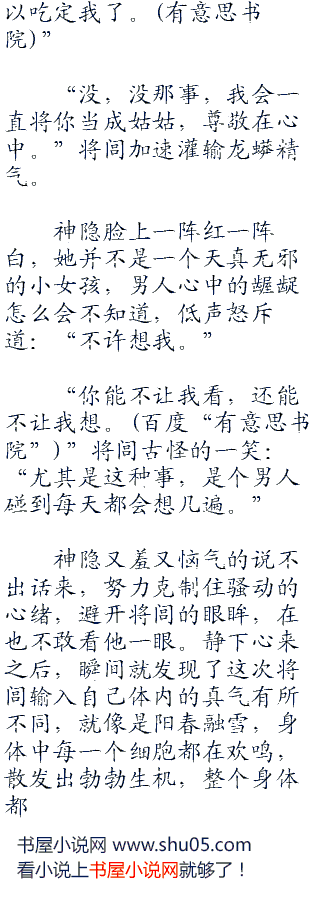 以吃定我了。(有意思书
院)”
“没，没那事，我会一
直将你当成姑姑，尊敬在心
中。”将闾加速灌输龙蟒精
气。
神隐脸上一阵红一阵
白，她并不是一个天真无邪
的小女孩，男人心中的龌龊
怎么会不知道，低声怒斥
道：“不许想我。”
“你能不让我看，还能
不让我想。(百度“有意思书
院”)”将闾古怪的一笑：
“尤其是这种事，是个男人
碰到每天都会想几遍。”
神隐又羞又恼气的说不
出话来，努力克制住骚动的
心绪，避开将闾的眼眸，在
也不敢看他一眼。静下心来
之后，瞬间就发现了这次将
闾输入自己体内的真气有所
不同，就像是阳春融雪，身
体中每一个细胞都在欢鸣，
散发出勃勃生机，整个身体
都
书屋小说网 www.shu05.com
看小说上书屋小说网就够了！